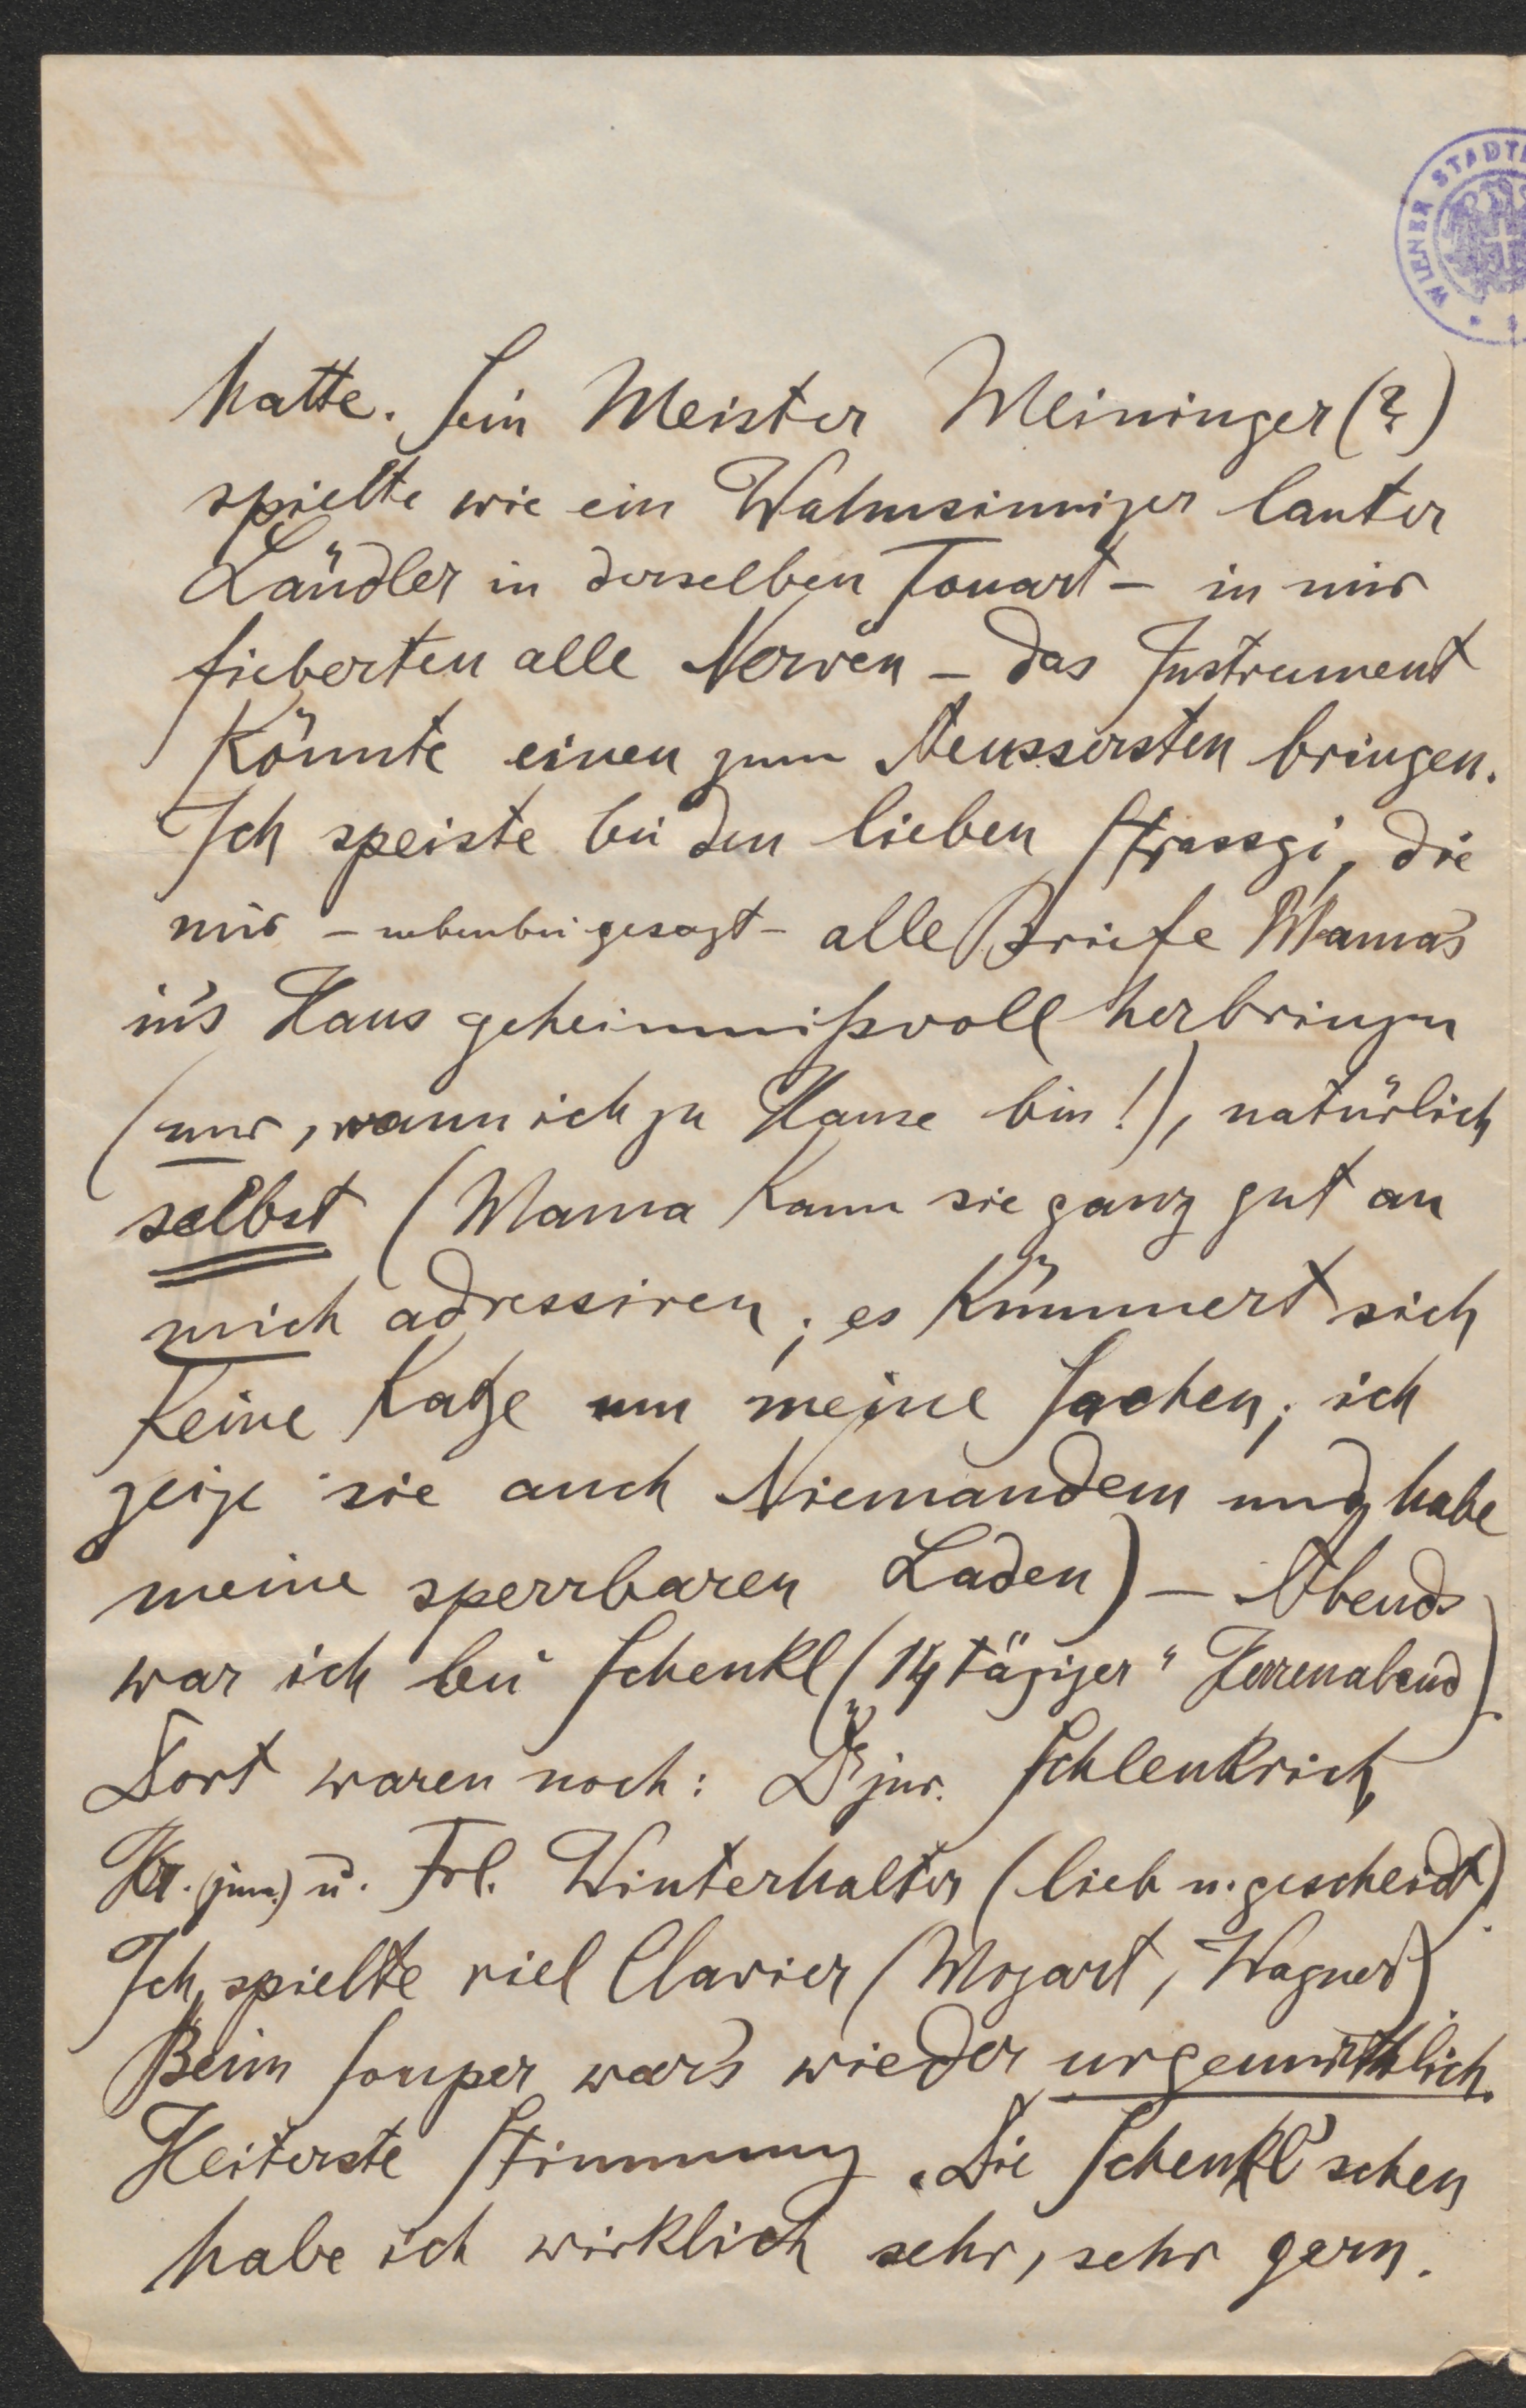 WIENER STADT
hatte. Sein Meister Meininger (?)
spielte wie ein Wahnsinniger lauter
Ländler in derselben Tonart – in mir
fieberten alle Nerven – das Instrument
könnte einen zum Aeussersten bringen.
Ich speiste bei den lieben Strassgi, die
mir – nebenbei gesagt – alle Briefe Mama's
in's Haus geheimnißvoll herbringen
(nur, wann ich zu Hause bin!), natürlich
selbst (Mama kann sie ganz gut an
mich adressiren; es kümmert sich
keine Katze um meine Sachen; ich
zeige sie auch Niemandem und habe
meine sperrbaren Laden) – Abends
war ich bei Schenkl (14tägiger "Herrenabend)
Dort waren noch: Dr jur. Schlenkrich,
Hr. (jun.) u. Frl. Winterhalter (lieb u. gescheidt).
Ich spielte viel Clavier (Mozart, Wagner).
Beim Souper war's wieder urgemüthlich.
Heiterste Stimmung. Die Schenkl'schen
habe ich wirklich sehr, sehr gern.